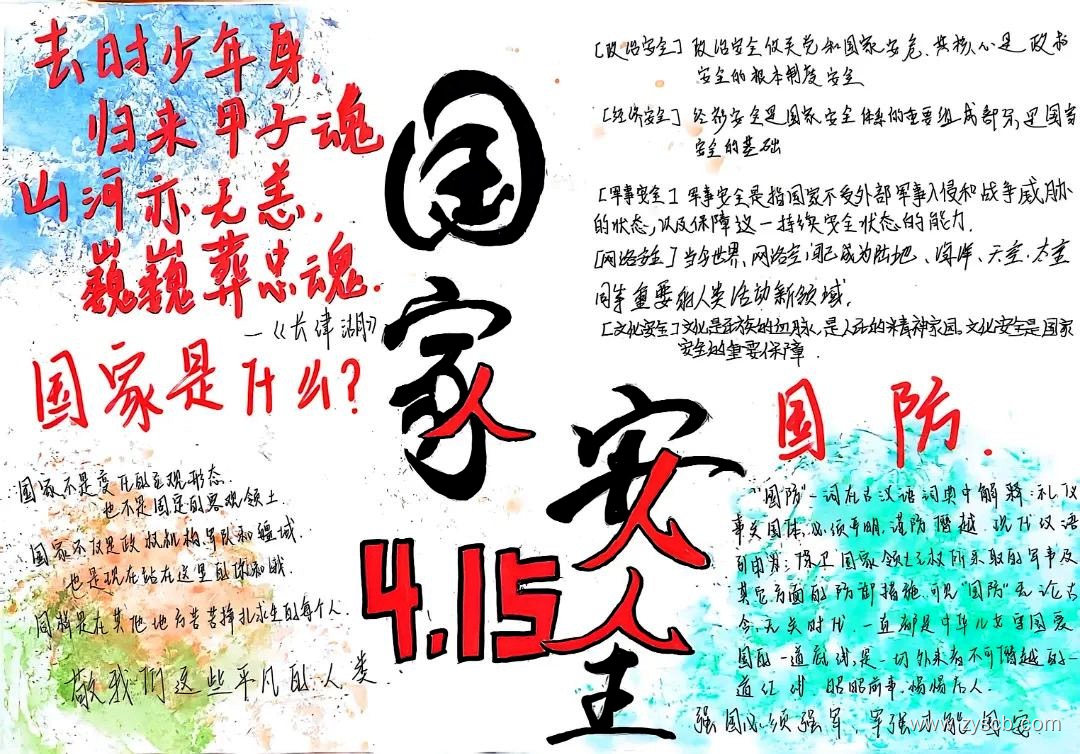 去时少年身，
归来甲子魂
山河亦无恙，
巍巍葬忠魂.
—《长津湖》
国家是什么？
国家不是变化的主观形态
也不是固定的客观领土
国家不仅是政权机构军队和疆域
也是现在站在这里的你和我.
同样是在其他地方苦苦挣扎求生的每个人.
敬我们这些平凡的人类.
国家安全
4.15
[政治安全] 政治安全攸关党和国家安危，其核心是政权
安全的根本制度安全
[经济安全] 经济安全是国家安全体系的重要组成部分，是国家
安全的基础
[军事安全] 军事安全是指国家不受外部军事入侵和战争威胁
的状态，以及保障这一持续安全状态的能力.
[网络安全] 当今世界、网络空间已成为陆地、海洋、天空、太空
同等重要的人类活动新领域.
[文化安全] 文化是民族的血脉，是人民的精神家园。文化安全是国家
安全的重要保障.
国防.
"国防"一词在古汉语词典中解释：礼仪
事关国体，必须严明，谨防僭越 现代汉语
引申为：保卫国家领土主权所采取的军事及
其它方面的防御措施.可见"国防"无论古
今，无关时代，一直都是中华儿女守国爱
国的一道底线，是一切外来者不可僭越的一
道红线. 昭昭前事，惕惕后人.
强国必须强军，军强才能国安
www.zyscb.com